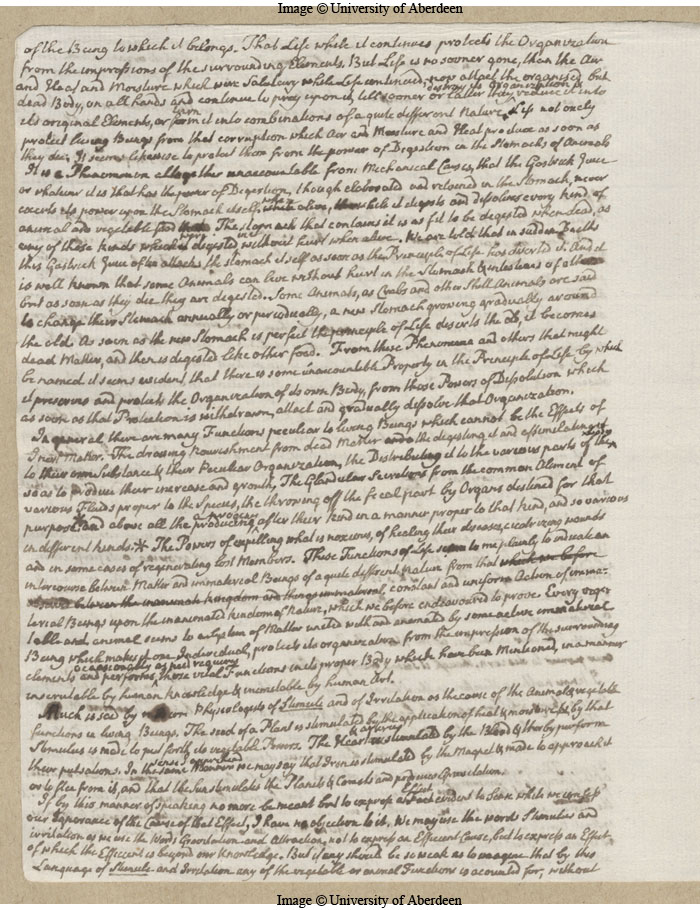 Image © University of Aberdeen
of the Being to which it belongs. That Life while it continues protects the Organization
from the impressions of the surrounding Elements. But Life is no sooner gone, than the Air
and Heat and Moisture which were Salutary while Life continued, now attack the organised but
dead Body, on all hands and continue to prey upon it, till sooner or later they reduce it into
destroy its Organization &
its original Elements, or form it into combinations of a quite different Nature. Life not only
protects living Beings from that corruption which Air and Moisture and Heat produce as soon as
they die; It seems likewise to protect them from the power of Digestion in the Stomachs of Animals
It is a Phenomenon altogether unaccountable from Mechanical Causes, that the Gastrick Juice
or whatever it is that has the power of Digestion, though elaborated and retained in the Stomach, never
exerts its power upon the Stomach itself, when alive, while it digests and dissolves every kind of
animal and vegetable food. The stomach that contains it is as fit to be digested when dead, as
any of those kinds which is digested without hurt when alive. We are told that in sudden Deaths
this Gastrick Juice often attacks the stomach itself as soon as the Principle of Life has deserted it. And it
is well known that some Animals can live without hurt in the Stomach & intestines of others
but as soon as they die they are digested. Some Animals, as Crabs and other Shell Animals are said
to change their Stomach annually or periodically, a new Stomach growing gradually around
the old. As soon as the new Stomach is perfect the principle of Life deserts the old, it becomes
dead Matter, and then is digested like other food. From these Phenomena and others that might
be named it seems evident, that there is some unaccountable Property in the Principle of Life by which
it preserves and protects the Organization of its own Body, from those Powers of Dissolution which
as soon as that Protection is withdrawn, attack and gradually dissolve that Organization.
In general, there are many Functions peculiar to living Beings which cannot be the Effects of
Inert Matter. The drawing nourishment from dead Matter and the digesting it and assimilating it
to their own Substance & their Peculiar Organization, the Distributing it to the various parts of the
so as to produce their increase and growth, The Glandular Secretions from the common Aliment of
various Fluids proper to the Species, the throwing off the fecal part by Organs destined for that
purpose. and above all the producing a progeny after their kind in a manner proper to that kind, and so various
in different kinds. * The Powers of expelling what is noxious, of healing their diseases, cicatrizing wounds
and in some cases of regenerating lost Members. These Functions of Life seem to me plainly to indicate an
intercourse between Matter and immaterial Beings of a quite different nature from that which we before
constant and uniform Action of imma-
terial Beings upon the inanimated kindom of Nature, which we before endeavoured to prove. Every vege
table and animal seems to be a System of Matter united with and animated by some active immaterial
Being which makes it one Individual, protects its organization from the impression of the surrounding
elements and performs those vital Functions in its proper Body which have been Mentioned, in a manner
occasionally as need require
inscrutable by human knowledge & inimitable by human Art.
Much is said by Physiologists of Stimuli and of Irritation as the cause of the Animal & vegetable
functions in living Beings. The seed of a Plant is stimulated by the application of heat & moisture & by that
Stimulus is made to put forth its vegetable Powers. The Heart & arteries is stimulated by the Blood & thereby perform
their pulsations. In the same Manner we may say that Iron is stimulated by the Magnet & made to approach it
or to flee from it, and that the Sun stimulates the Planets & Comets and produces Gravitation.
If by this manner of speaking no more be meant but to express an Effect evident to Sense while we confess
our Ignorance of the Cause of that Effect, I have no objection to it. We may use the words Stimulus and
irritation as we use the Words Gravitation and Attraction, not to express an Efficient Cause, but to express an Effect
of which the Efficient is beyond our Knowledge. But if any should be so weak as to imagine that by this
Language of Stimuli and Irritation any of the vegetable or animal Functions is acounted for, without
Image © University of Aberdeen